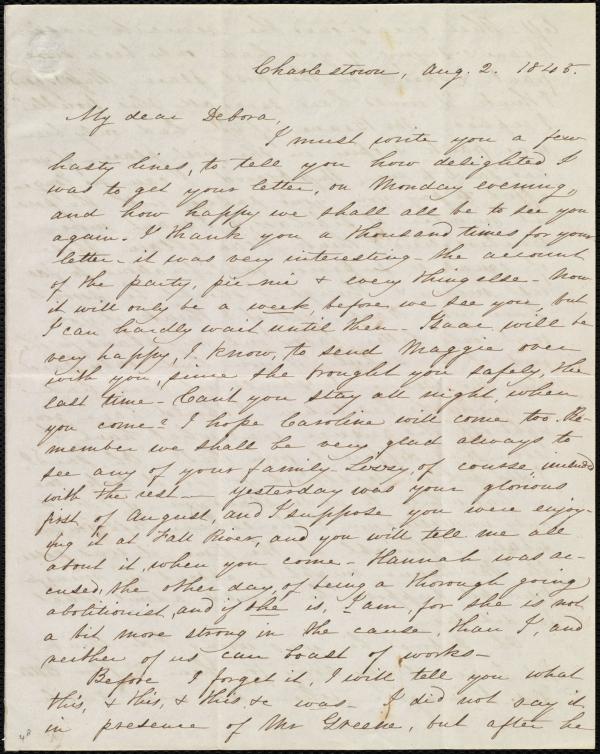 Charlestown, Aug. 2. 1845.
My dear Debora,
I must write you a few
hasty lines, to tell you how delighted I
was to get your letter, on Monday evening,
and how happy we shall all be to see you
again. I thank you a thousand times for your
letter - it was very interesting - the account
of the party, pic-nic & every thing else - Now
it will only be a week, before we see you, but
I can hardly wait until then - Isaac will be
very happy, I know, to send Maggie over
with you, since she brought you safely, the
last time - Can't you stay all night, when
you come? I hope Caroline will come too. Re-
member we shall be very glad always to
see any of your family - Lizzy, of course, included
with the rest - yesterday was your glorious
first of August, and I suppose you were enjoy-
ing it at Fall River, and you will tell me all
about it, when you come - Hannah was ac-
cused, the other day, of being a thorough going
abolitionist, and if she is, I am, for she is not
a bit more strong in the cause, than I, and
neither of us can boast of works -
Before I forget it, I will tell you what
this, & this, & this, &c was - I did not say it
in presence of Mr Greene, but after he